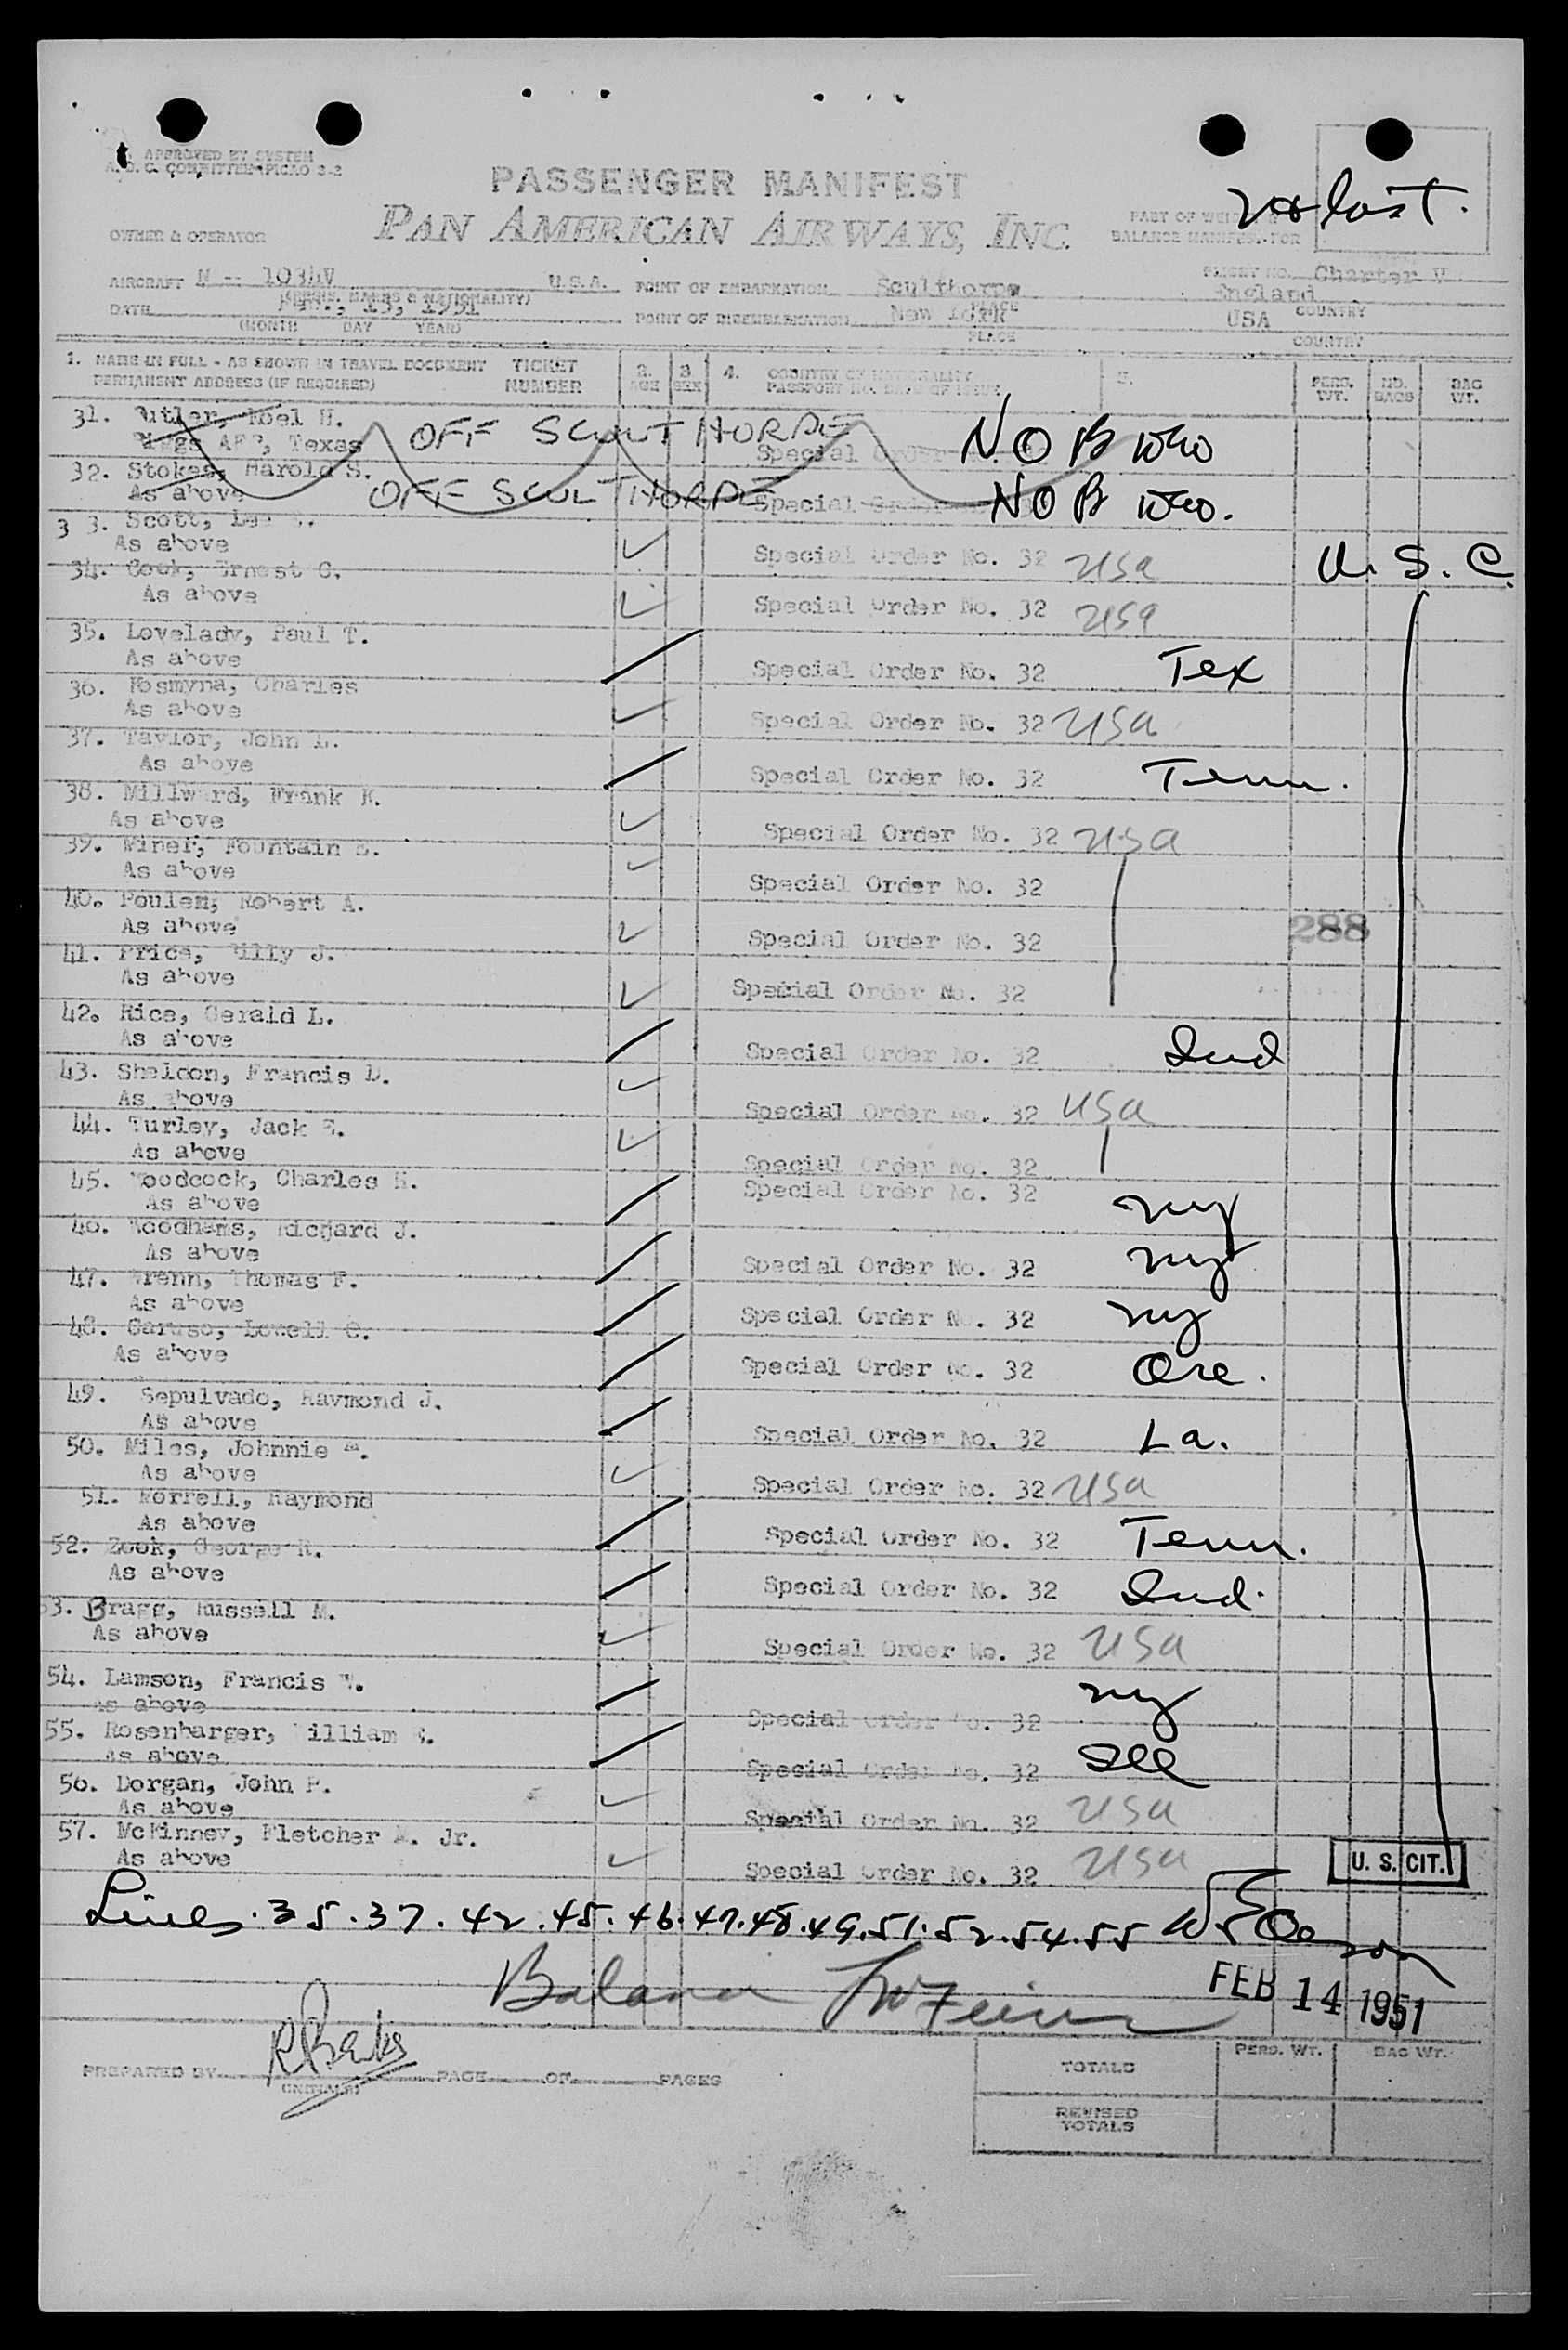 APPROVED BY SYSTEM
A.D.C. COMMITTEE-PICAO 2-2
PASSENGER MANIFEST
PAN AMERICAN AIRWAYS, INC.
OWNER & OPERATOR
PART OF WEIGHT &
BALANCE MANIFEST FOR
last.
AIRCRAFT N -- 1034V U.S.A. POINT OF EMBARKATION Sculthorpe England FLIGHT NO. Charter V
(REGIS. MARKS & NATIONALITY) PLACE COUNTRY
DATE Feb., 13, 1951 POINT OF DISEMBARKATION New York USA
(MONTH DAY YEAR) PLACE COUNTRY
1. NAME IN FULL - AS SHOWN IN TRAVEL DOCUMENT TICKET 2. 3. 4. COUNTRY OF NATIONALITY 5. PERS. NO. BAG
PERMANENT ADDRESS (IF REQUIRED) NUMBER AGE SEX PASSPORT NO. DATE OF ISSUE WT. BAGS WT.
31. Butler, Noel H. OFF SCULTHORPE
Biggs AFB, Texas Special Order N.O.B.
32. Stokes, Harold S.
As above OFF SCULTHORPE Special Order N O B
33. Scott, Lee
As above Special Order No. 32 USA U.S.C.
34. Cook, Ernest C.
As above Special Order No. 32 USA
35. Lovelady, Paul T.
As above Special Order No. 32 Tex
36. Kosmyna, Charles
As above Special Order No. 32 USA
37. Taylor, John L.
As above Special Order No. 32 Tenn.
38. Millward, Frank K.
As above Special Order No. 32 USA
39. Miner, Fountain
As above Special Order No. 32
40. Poulen, Robert A.
As above Special Order No. 32 288
41. Price, Billy J.
As above Special Order No. 32
42. Rice, Gerald L.
As above Special Order No. 32 Ind
43. Sheldon, Francis D.
As above Special Order No. 32 USA
44. Turley, Jack E.
As above Special Order No. 32
45. Woodcock, Charles H. Special Order No. 32
As above NY
46. Woodhams, Richard J.
As above Special Order No. 32 NY
47. Wrenn, Thomas F.
As above Special Order No. 32 NY
48. Caruso, Lowell C.
As above Special Order No. 32 Ore.
49. Sepulvado, Raymond J.
As above Special Order No. 32 La.
50. Miles, Johnnie
As above Special Order No. 32 USA
51. Morrell, Raymond
As above Special Order No. 32 Tenn.
52. Zook, George R.
As above Special Order No. 32 Ind.
53. Bragg, Russell M.
As above Special Order No. 32 USA
54. Lamson, Francis W.
As above Special Order No. 32 NY
55. Rosenbarger, William
As above Special Order No. 32 Ill
56. Dorgan, John P.
As above Special Order No. 32 USA
57. McKinney, Fletcher M. Jr.
As above Special Order No. 32 USA U. S. CIT.
Lines. 35. 37. 42. 45. 46. 47. 48. 49. 51. 52. 54. 55
Balance
FEB 14 1951
PREPARED BY PAGE OF PAGES
(INITIALS)
PERS. WT. BAG WT.
TOTALS
REVISED
TOTALS